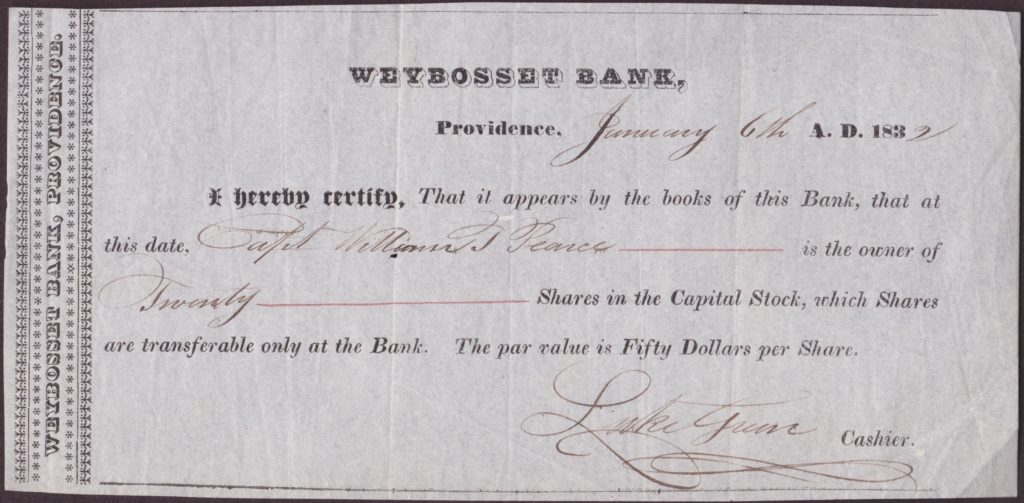 WEYBOSSET BANK, PROVIDENCE.
WEYBOSSET BANK,
Providence, January 6th A. D. 1832
I hereby certify, That it appears by the books of this Bank, that at
this date, Capt William T Pearce is the owner of
Twenty Shares in the Capital Stock, which Shares
are transferable only at the Bank. The par value is Fifty Dollars per Share.
Luke Cashier.